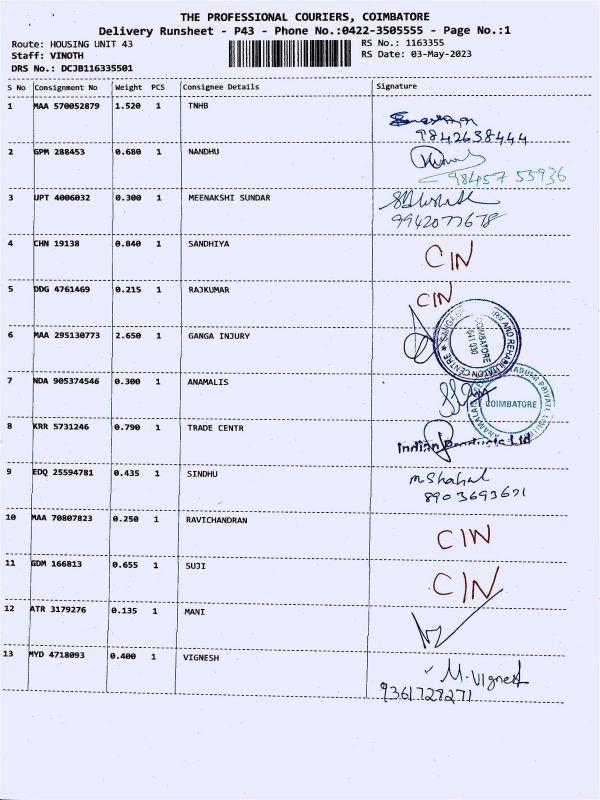 THE PROFESSIONAL COURIERS, COIMBATORE
Delivery Runsheet - P43 - Phone No.:0422-3505555 - Page No.:1
Route: HOUSING UNIT 43 RS No.: 1163355
Staff: VINOTH RS Date: 03-May-2023
DRS No.: DCJB116335501
S No Consignment No Weight PCS Consignee Details Signature
1 MAA 570052879 1.520 1 TNHB
9842638444
2 GPM 288453 0.680 1 NANDHU
98457 55936
3 UPT 4006032 0.300 1 MEENAKSHI SUNDAR
9942077678
4 CHN 19138 0.840 1 SANDHIYA CIN
5 DDG 4761469 0.215 1 RAJKUMAR CIN
6 MAA 295130773 2.650 1 GANGA INJURY
COIMBATORE
641 030
AND REHABILITATION CENTRE
7 NDA 905374546 0.300 1 ANAMALIS
COIMBATORE
PRIVATE
8 KRR 5731246 0.790 1 TRADE CENTR
Indian Products Ltd
9 EDQ 25594781 0.435 1 SINDHU M. Shahal
8903693671
10 MAA 70807823 0.250 1 RAVICHANDRAN CIN
11 GDM 166813 0.655 1 SUJI CIN
12 ATR 3179276 0.135 1 MANI
13 MYD 4718093 0.400 1 VIGNESH M. Vignesh
9361728271